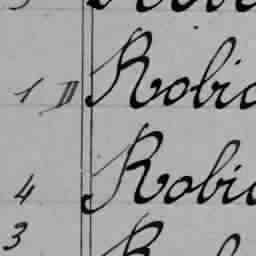 1 II Robic
4 Robic
3